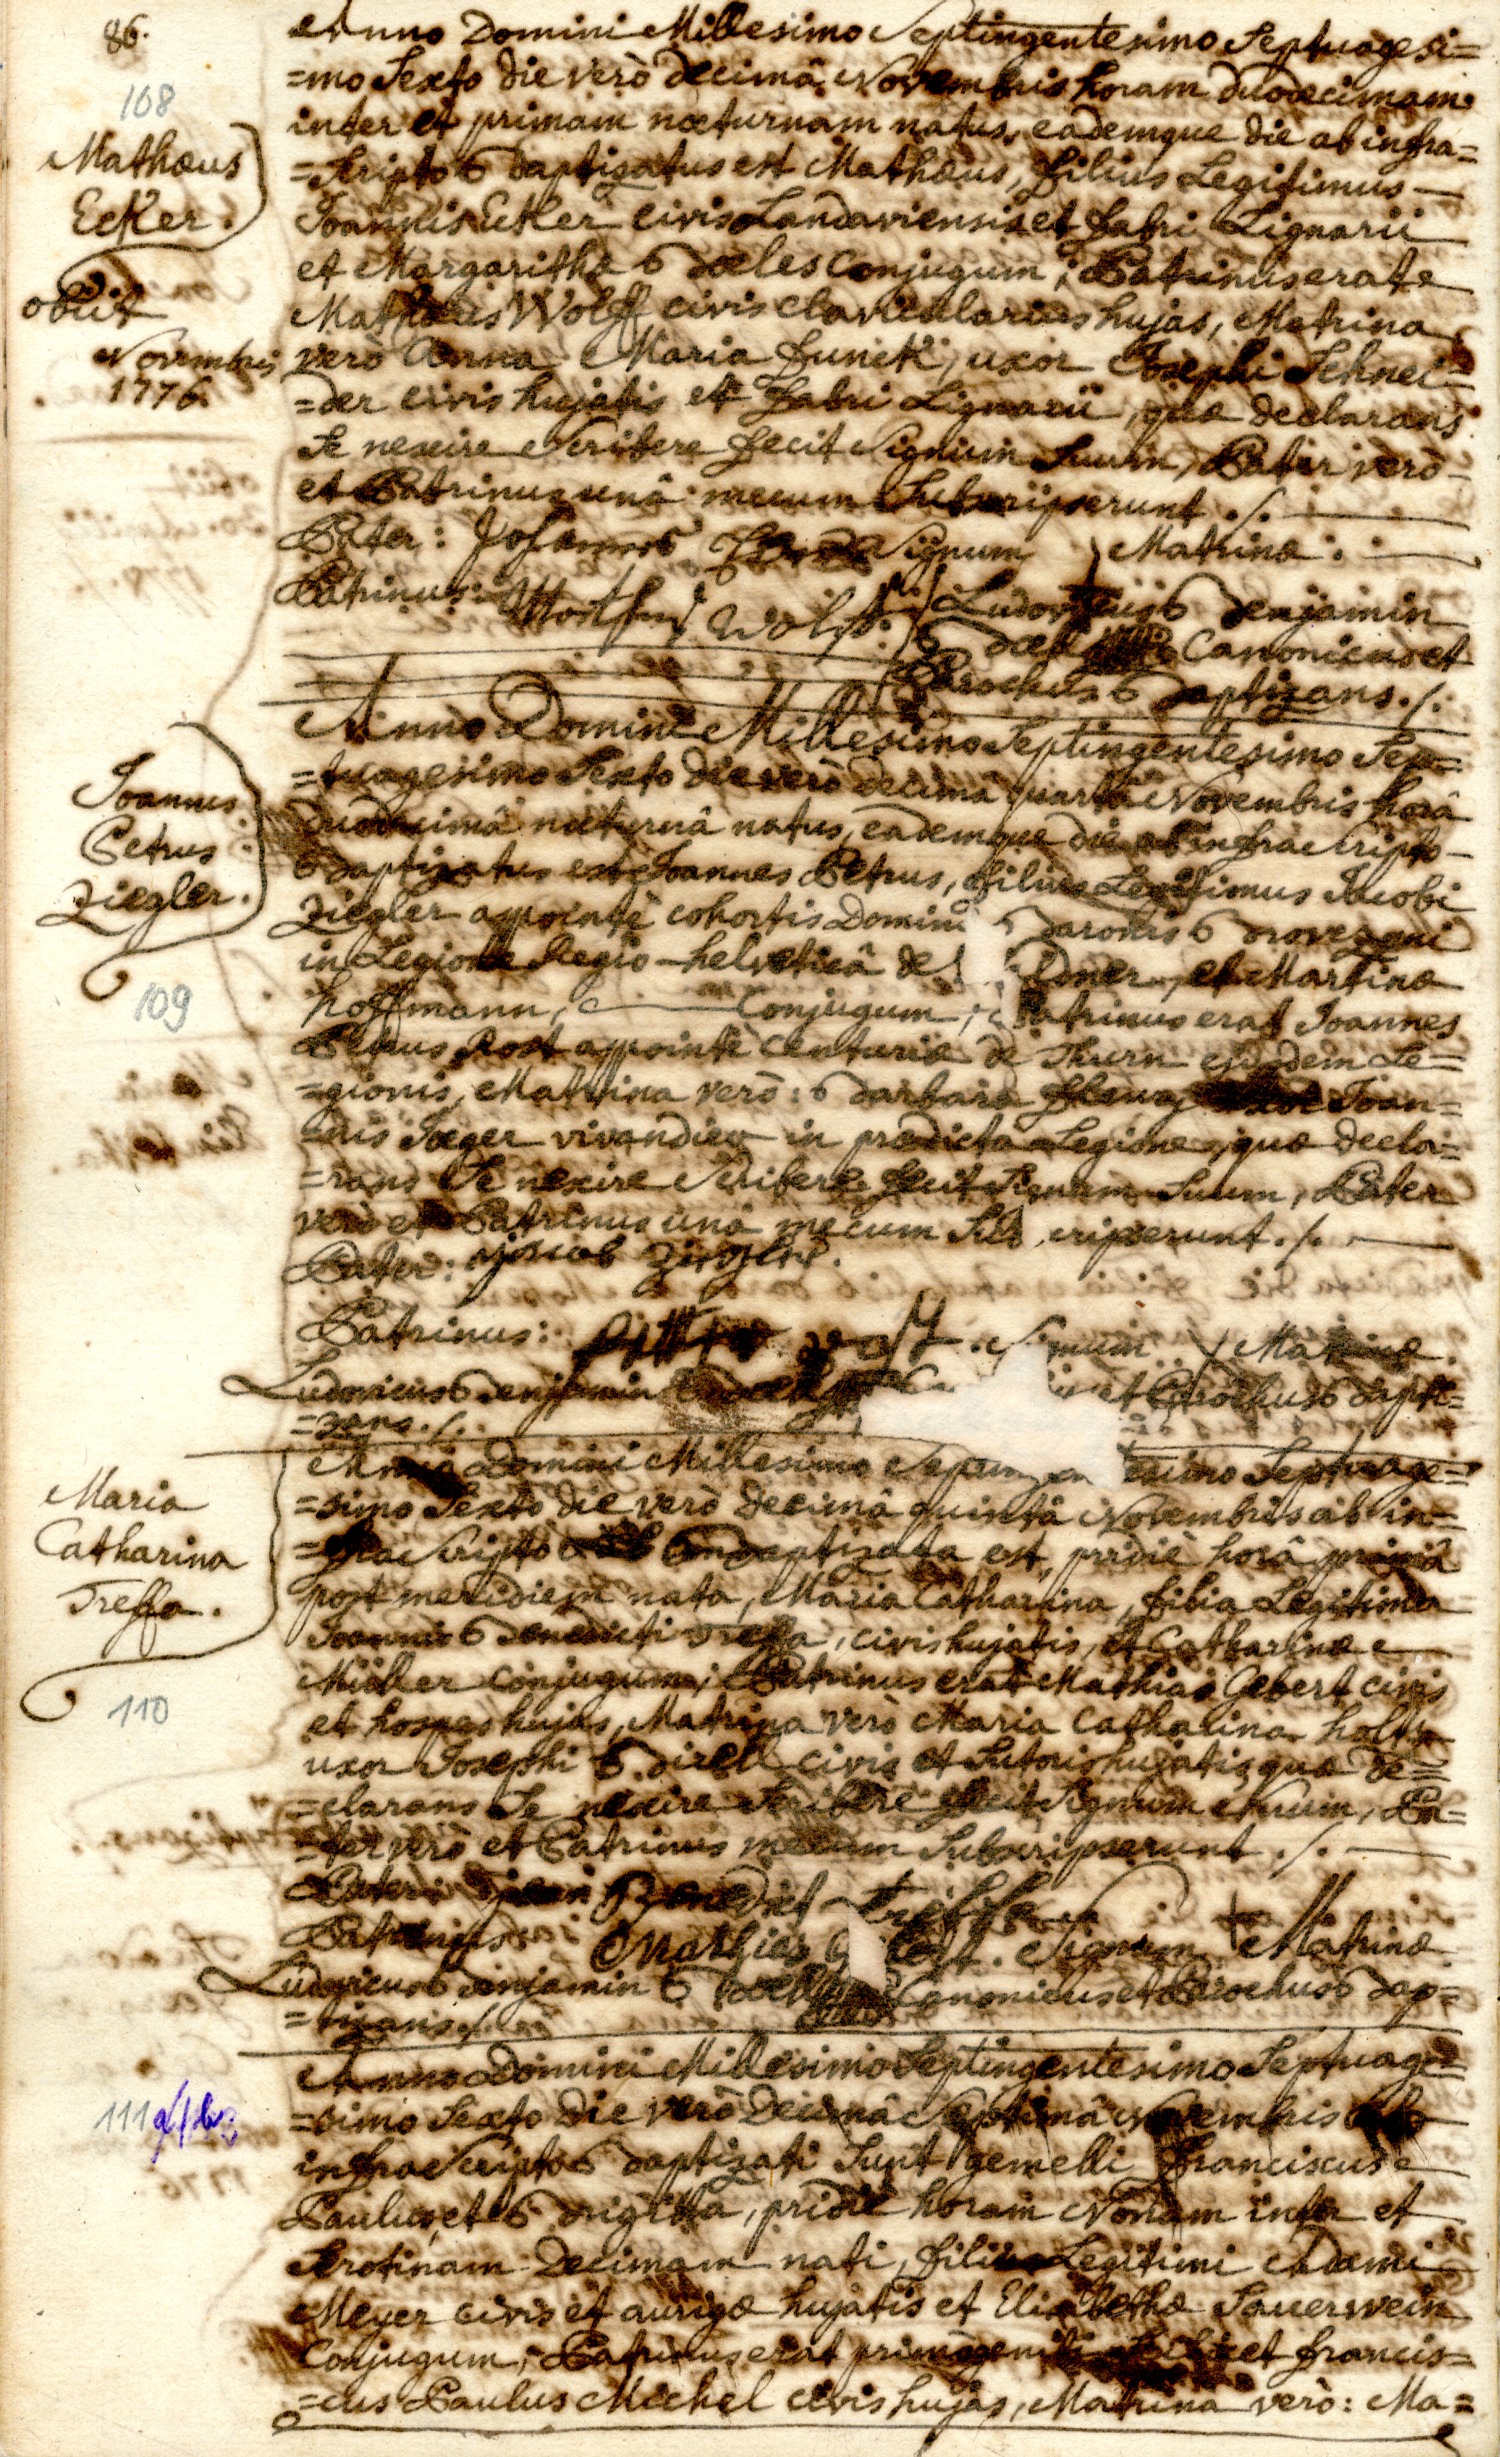 86.
108
Mathæus
Ecker.
obiit
Novembris
1776.
Anno Domini Millesimo Septingentesimo Septuagesi=
=mo Sexto die verò decimâ Novembris horam duodecimam
inter et primam nocturnam natus, eademque die ab infra=
=Scripto Baptizatus est Mathæus, filius Legitimus
Joannis Ecker civis Landaviensis et fabri Lignarii
et Margarithæ Boeles Conjugum; Patrinus erat
Mathæus Wolff civis clavicularius hujas, Matrina
verò Anna Maria funck, uxor Josephi Schnei=
=der civis hujatis et fabri Lignarii, quæ declarans
Se nescire Scribere fecit Signum Suum, Pater verò
et Patrinus unâ mecum Subscripserunt ./.
Pater: Johannes Signum Matrinæ.
Patrinus: Wolff. Ludovicus Benjamin
Canonicus et
Parochus Baptizans ./.
Joannes
Petrus
Ziegler.
109
Anno Domini Millesimo Septingentesimo Sep=
=tuagesimo Sexto die verò decimâ quartâ Novembris horâ
duodecimâ nocturnâ natus, eademque die ab infraScripto
Baptizatus est Joannes Petrus, filius Legitimus Jacobi
Ziegler appointé cohortis Domini Baronis
in Legione Regio-helveticâ de et Martinæ
hoffmann, Conjugum; Patrinus erat Joannes
Petrus Rost appointé Centuriæ de Thurn ejusdem Le=
=gionis, Matrina verò: Barbara uxor Joan=
=nis Jæger vivandier in prædicta Legione, quæ decla=
=rans Se nescire Scribere fecit Signum Suum, Pater
verò et Patrinus unâ mecum Subscripserunt ./.
Pater: Jacob Ziegler.
Patrinus: Signum Matrinæ.
Ludovicus Benjamin et Parochus Bapti=
=zans ./.
Maria
Catharina
Treffa.
110
Anno Domini Millesimo Septingentesimo Septuage=
=simo Sexto die verò decimâ quintâ Novembris ab in=
=fraScripto Baptizata est, pridiè horâ primâ
post meridiem nata, Maria Catharina, filia Legitima
Joannis Benedicti Treffa, civis hujatis, et Catharinæ
Müller Conjugum; Patrinus erat Mathias Gebert civis
et hospes hujas, Matrina verò Maria Catharina
uxor Josephi civis et Sutoris hujatis, quæ de=
=clarans Se nescire Scribere fecit Signum Suum, Pa=
=ter verò et Patrinus mecum Subscripserunt ./.
Pater: jean Benedict treffa
Patrinus: Mathias Signum Matrinæ
Ludovicus Benjamin Canonicus et Parochus Bap=
=tizans ./.
111
Anno Domini Millesimo Septingentesimo Septuage=
=simo Sexto die verò Decimâ Septimâ Novembris ab
infraScripto Baptizati Sunt gemelli Franciscus
Paulus, et Brigitta, pridiè horam Nonam inter et
Serotinam Decimam nati, filii Legitimi Adami
Meyer civis et aurigæ hujatis et Elisabethæ Sauerwein
Conjugum; Patrinus erat primogeniti francis=
=cus Paulus Michel civis hujas, Matrina verò: Ma=